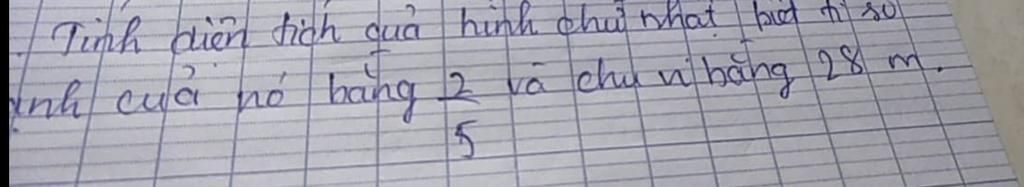 Tính diện tích quả hình chữ nhật biết tỉ số
của nó bằng 2/5 và chu vi bằng 28 m.